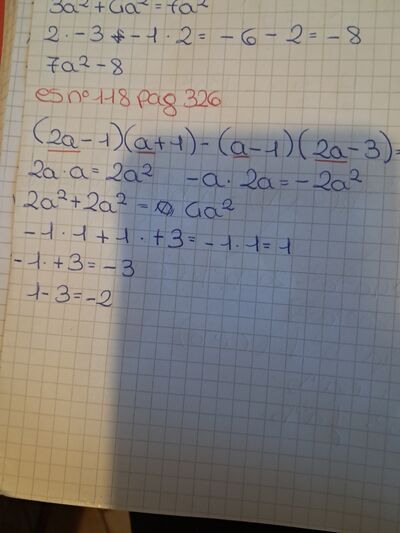 3a² + 4a² = 7a²
2 · -3 + -1 · 2 = -6 - 2 = -8
7a² - 8
es n° 118 pag 326
(2a-1)(a+1)-(a-1)(2a-3)=
2a · a = 2a² -a · 2a = -2a²
2a² + 2a² = 4a²
-1 · 1 + 1 · +3 = -1 · 1 = 1
-1 · +3 = -3
1-3 = -2